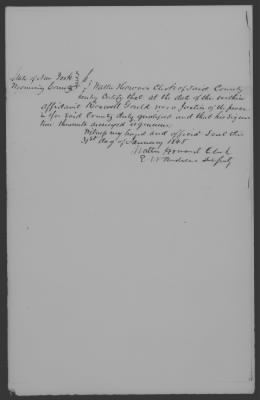 State of New York
Wyoming County } ss
I Walter Howard Clerk of said County
hereby Certify that at the date of the within
affidavit Roswell Gould was a Justice of the peace
in & for said County duly qualified and that his signa
ture thereunto annexed is genuine
Witness my hand and official Seal this
31st day of January 1848
Walter Howard Clerk
Deputy